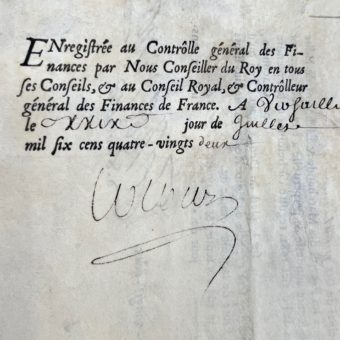 ENregistrée au Contrôlle général des Fi-
nances par Nous Conseiller du Roy en tous
ses Conseils, & au Conseil Royal, & Contrôlleur
général des Finances de France. A Versailles
le jour de Juillet
mil six cens quatre-vingts deux